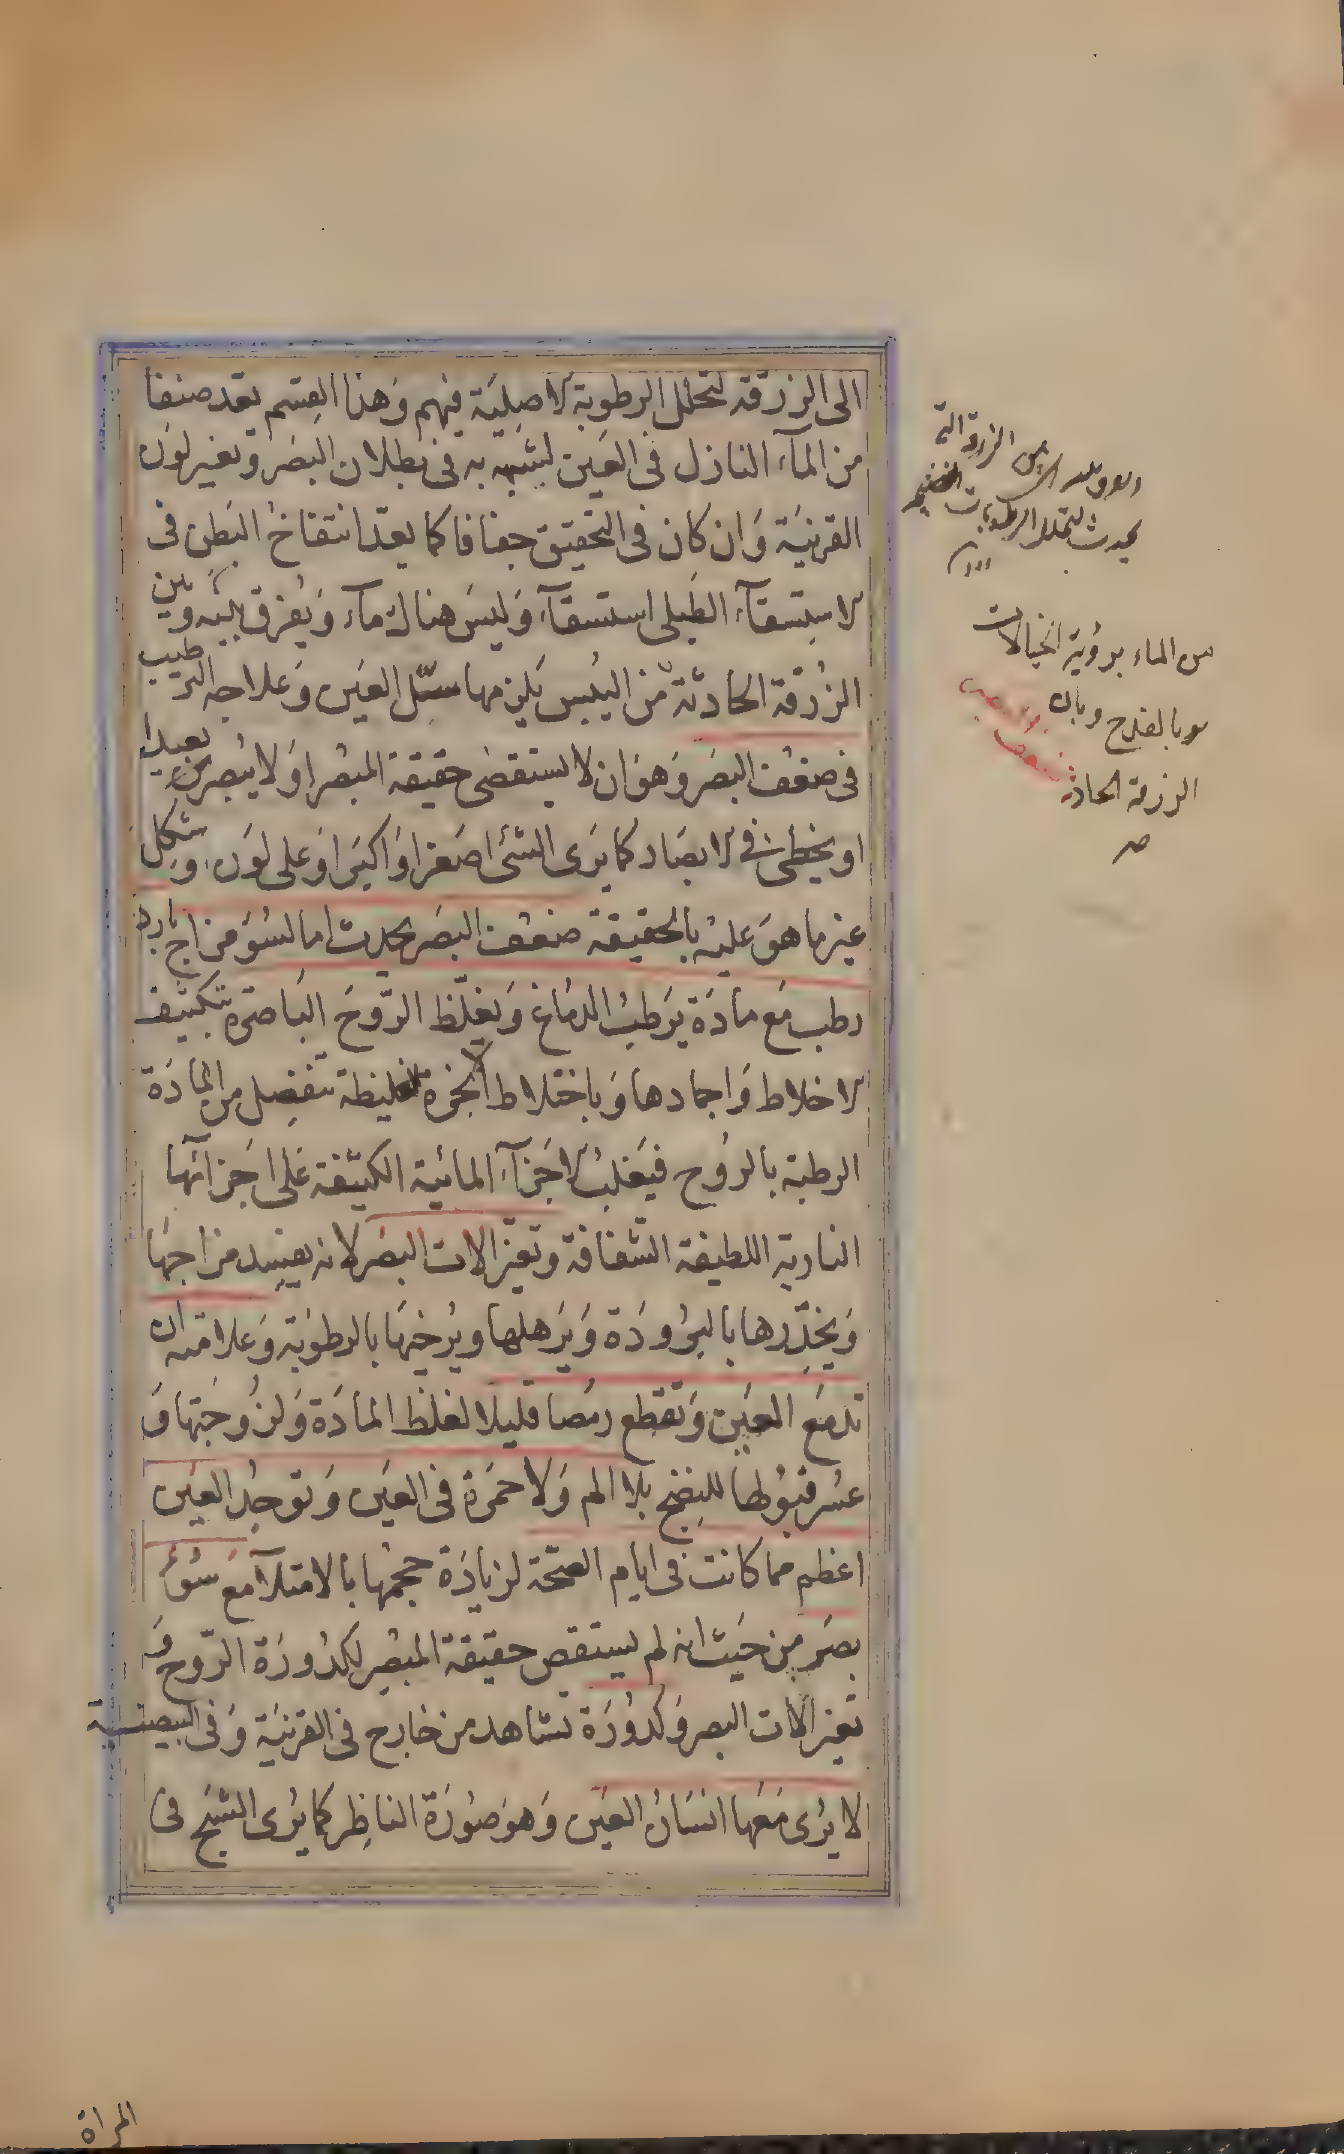 الى الزرقة لتحلل الرطوبة الاصلية فيهم وهذا القسم يعد صنفا
من المآء النازل فى العين لشبهه به فى بطلان البصر وتغير لون
القرنية وان كان فى التحقيق جفافا كما يعد انتفاخ البطن فى
الاستسقآء الطبلى استسقآء وليس هناك مآء ويفرق بينه وبين
الزرقة الحادثة من اليبس يلزمها سل العين وعلاجه الترطيب
فى ضعف البصر وهو ان لا يستقضى حقيقة المبصر او لا يبصر من بعيد
او يخطئ فى الابصار كما يرى الشئ اصغر او اكبر او على لون وشكل
غير ما هو عليه بالحقيقة ضعف البصر يحدث اما لسؤ مزاج بارد
رطب مع مادة يرطب الدماغ ويغلظ الروح الباصرة بتكثيف
الاخلاط واجمادها وباختلاط الابخرة الغليظة تنفصل من المادة
الرطبة بالروح فيغلب الاجزآء المائية الكثيفة على اجزآئها
النارية اللطيفة الشفافة وتغير الات البصر لانه يفسد مزاجها
ويخدرها بالبرودة ويرهلها ويرخيها بالرطوبة وعلامته ان
تدمع العين وتقطع رمصا قليلا لغلظ المادة ولزوجتها و
عسر قبولها للنضج بلا الم ولا حمرة فى العين وتوجد العين
اعظم مما كانت فى ايام الصحة لزيادة حجمها بالامتلآ مع سوء
بصر من حيث انه لم يستقص حقيقة المبصر لكدورة الروح و
تغير الات البصر وكدورة تشاهد من خارج فى القرنية وفى البيضية
لا يرى معها انسان العين وهو صورة الناظر كما يرى الشبح فى
المراة
الزرقة التى
يحدث لتحلل الرطوبات
من الماء برؤية الخيالات
بالقدح وبان
الزرقة الحادثة